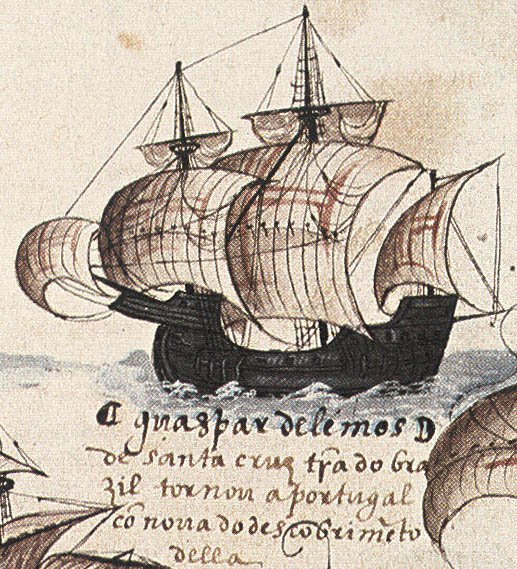 guaspar de lemos D
de santa cruz tr̃a do bra
zil tornou a portugal
cõ noua do descobrimẽto
della